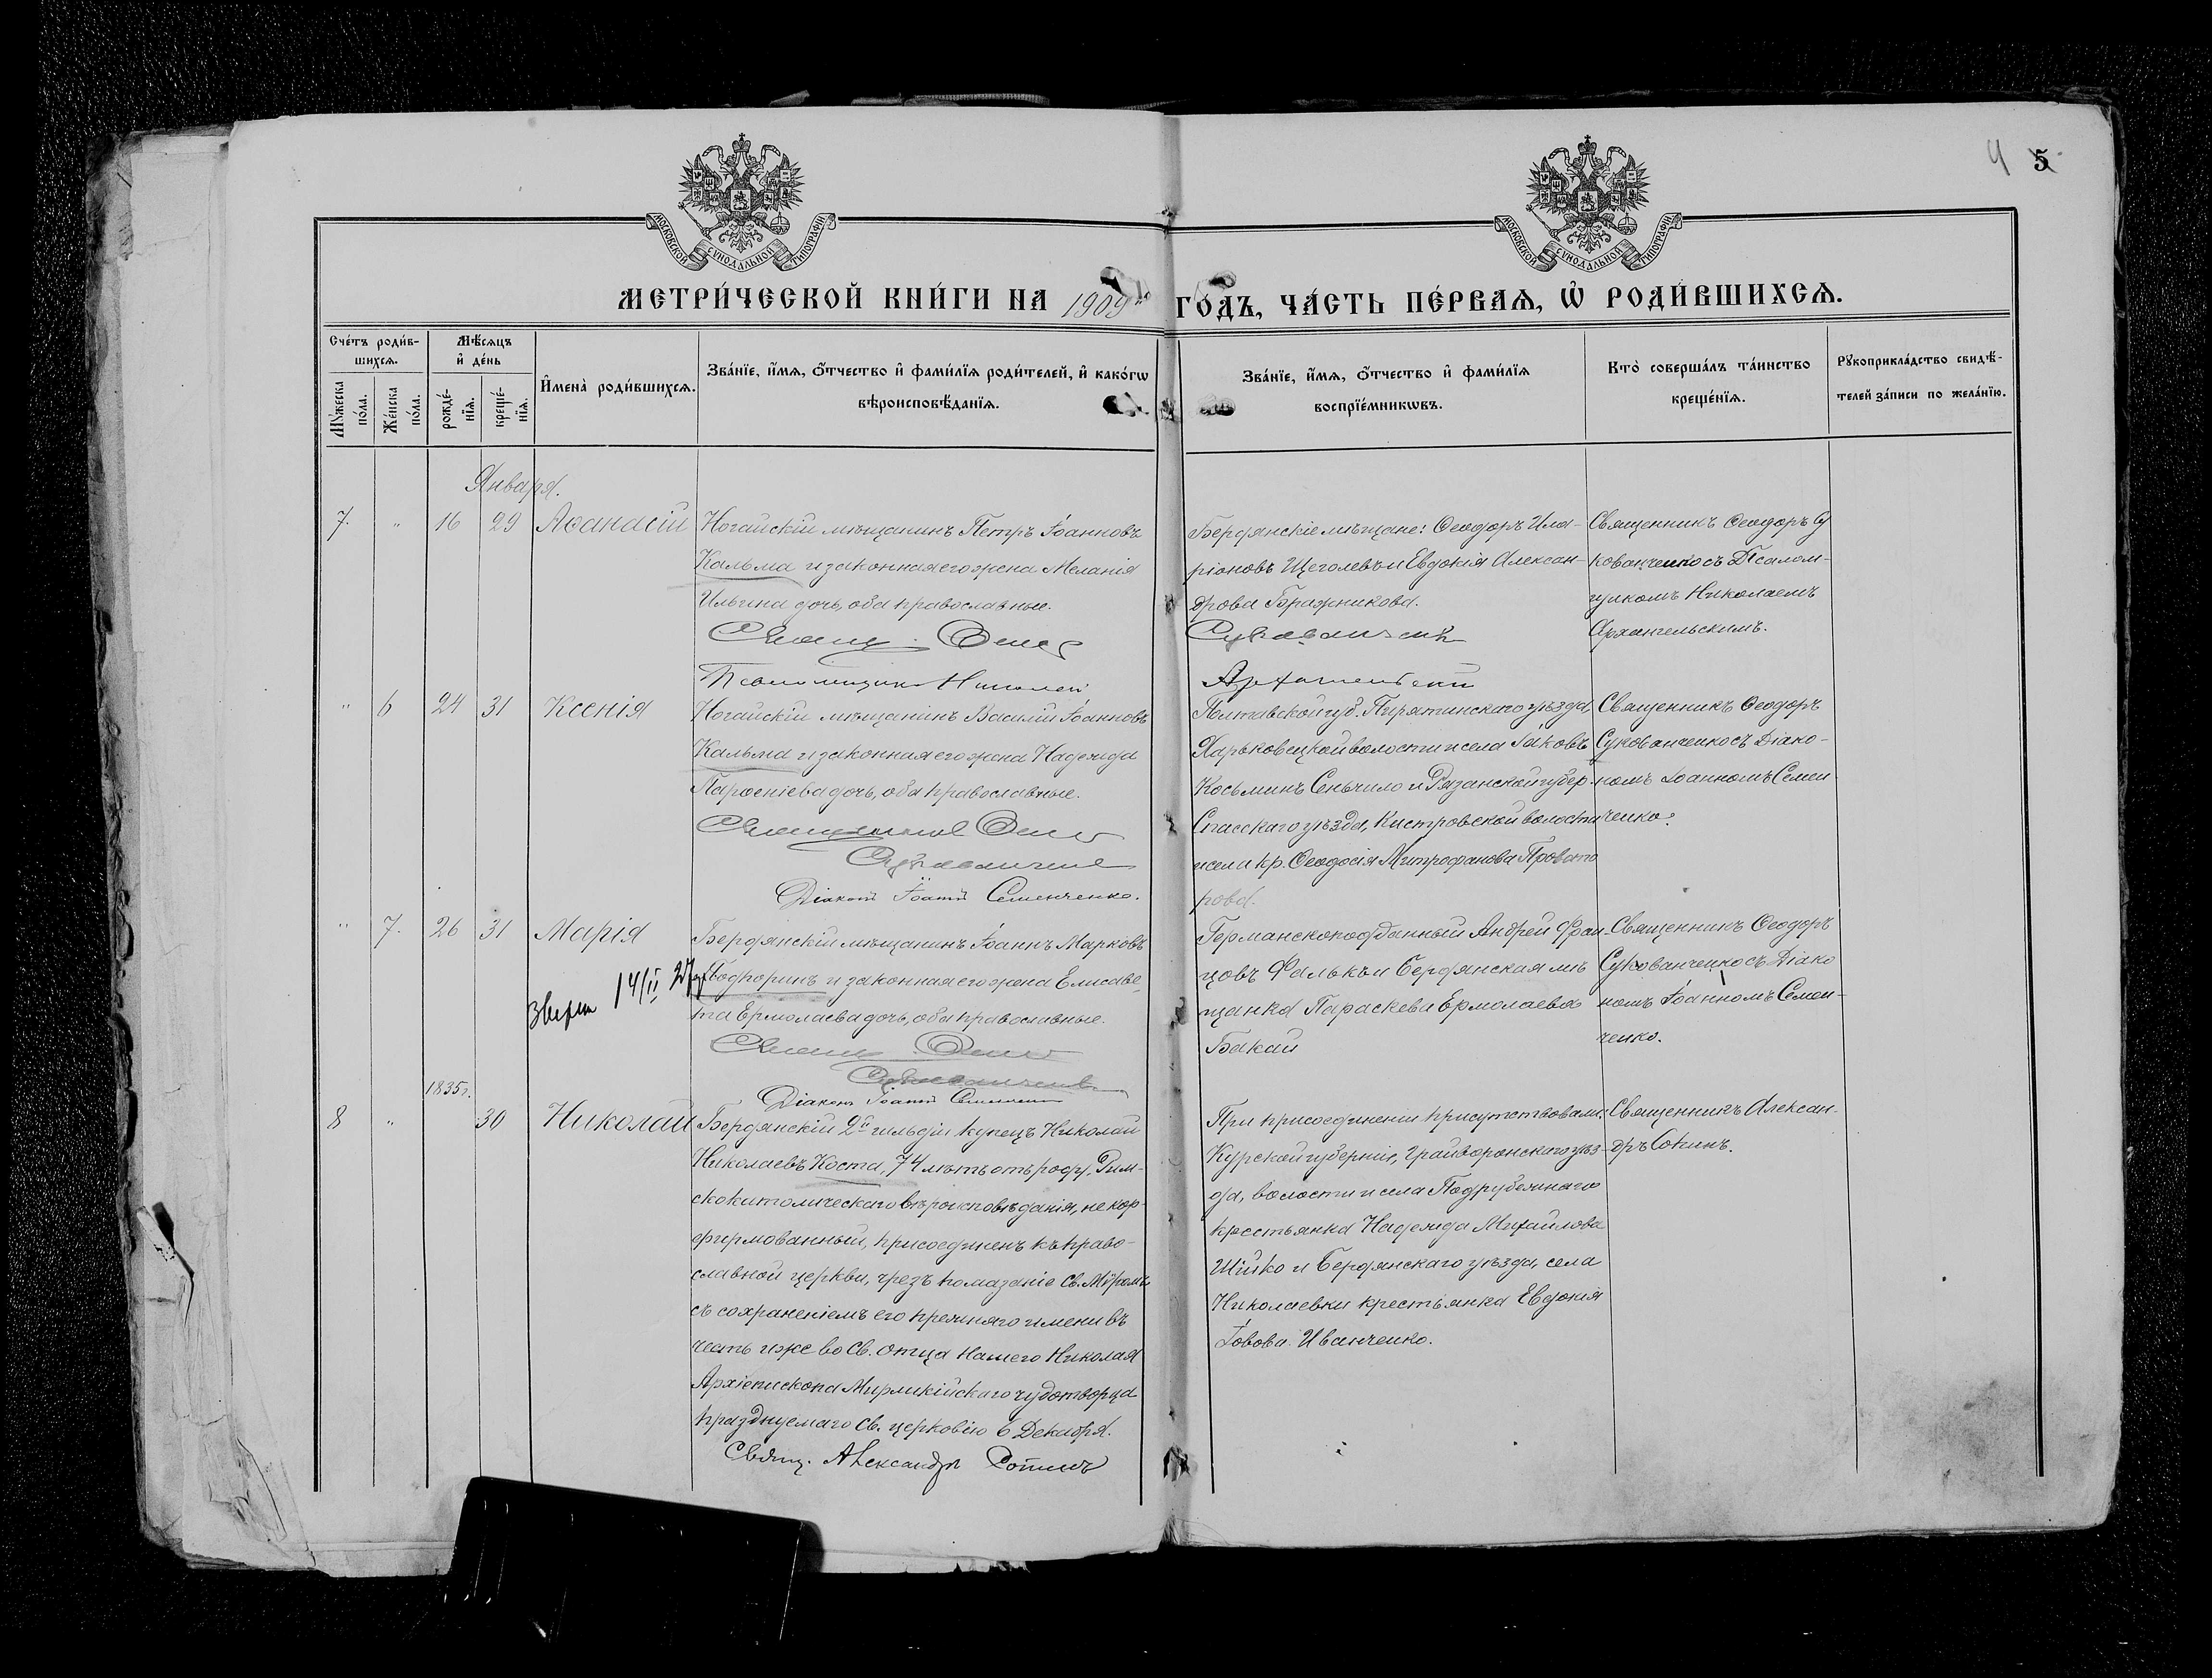 4 5
МОСКОВСКОЙ СѴНОДАЛЬНОЙ ТИПОГРАФІИ
МОСКОВСКОЙ СѴНОДАЛЬНОЙ ТИПОГРАФІИ
МЕТРИ́ЧЕСКОЙ КНИ́ГИ НА 1909й ГО́ДЪ, ЧА́СТЬ ПЕ́РВАѦ, Ѽ РОДИ́ВШИХСѦ.
Сче́тъ роди́в-
шихсѧ.
Мꙋ́жеска
по́ла.
Же́нска
по́ла.
Мѣ́сѧцъ
и҆ де́нь
рожде́-
нїѧ.
креще́-
нїѧ.
И҆мена̀ роди́вшихсѧ.
Зва́нїе, и҆́мѧ, ѻ҆́тчество и҆ фами́лїѧ роди́телей, и҆ како́гѡ
вѣроисповѣ́данїѧ.
Зва́нїе, и҆́мѧ, ѻ҆́тчество и҆ фами́лїѧ
воспрїе́мникѡвъ.
Кто̀ соверша́лъ та́инство
креще́нїѧ.
Рꙋкоприкла́дство свидѣ́-
телей за́писи по жела́нїю.
Января.
7. " 16 29 Аѳанасій
Ногайскій мѣщанинъ Петръ Іоанновъ
Кальма и законная его жена Меланія
Ильина дочь, оба православные.
Свящ. Ѳеод
Псаломщикъ Николай
Бердянскіе мѣщане: Ѳеодоръ Ила-
ріоновъ Щеголевъ и Евдокія Алексан-
дрова Бражникова.
Сукованченко
Архангельскій
Священникъ Ѳеодоръ Су
кованченко съ Псалом-
щикомъ Николаемъ
Архангельскимъ.
" 6 24 31 Ксенія
Ногайскій мѣщанинъ Василій Іоанновъ
Кальма и законная его жена Надежда
Парѳеніева дочь, оба православные.
Священникъ Ѳеод
Сукованченко
Діаконъ Іоаннъ Семенченко.
Полтавской губ. Пирятинскаго уѣзда,
Харьковецкой волости и села Іаковъ
Косьминъ Сеньчило и Рязанской губер.
Спасскаго уѣзда, Кистровской волости
и села кр. Ѳеодосія Митрофанова Провато
рова.
Священникъ Ѳеодоръ
Сукованченко съ Діако-
номъ Іоанномъ Семен
ченко.
" 7. 26 31 Марія
14/II 37
Бердянскій мѣщанинъ Іоаннъ Марковъ
Подпоринъ и законная его жена Елисаве-
та Ермолаева дочь, оба православные.
Свящ. Ѳеод
Сукованченко
Діаконъ Іоаннъ Семенченко
Германскоподданный Андрей Фран
цовъ Фалькъ и Бердянская мѣ
щанка Параскева Ермолаева
Бакай
Священникъ Ѳеодоръ
Сукованченко съ Діако
номъ Іоанномъ Семен-
ченко.
1835г.
8 " 30 Николай
Бердянскій 2й гильдіи купецъ Николай
Николаевъ Коста, 74 лѣтъ отъ род., Рим-
скокатолическаго вѣроисповѣданія, не кон-
фирмованный, присоединенъ къ право-
славной церкви, чрезъ помазаніе Св. Мѵромъ
съ сохраненіемъ его прежняго имени въ
честь иже во Св. Отца нашего Николая
Архіепископа Мирликійскаго чудотворца
празднуемаго Св. церковію 6 Декабря.
Свящ. Александръ Сопинъ
При присоединеніи присутствовали:
Курской губерніи, Грайворонскаго уѣз-
да, волости и села Подрубежнаго
крестьянка Надежда Михайлова
Шійко и Бердянскаго уѣзда, села
Николаевки крестьянка Евдокія
Іовова Иванченко.
Священникъ Алексан-
дръ Сопинъ.